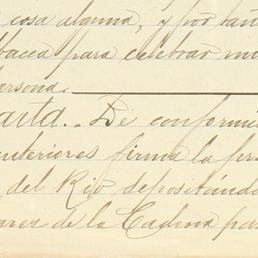 cosa alguna, y por tan
bacea para celebrar mi
ersona.
arta.- De conformi
nteriores firma la pre
del Rio depositánd
arez de la Cadena par